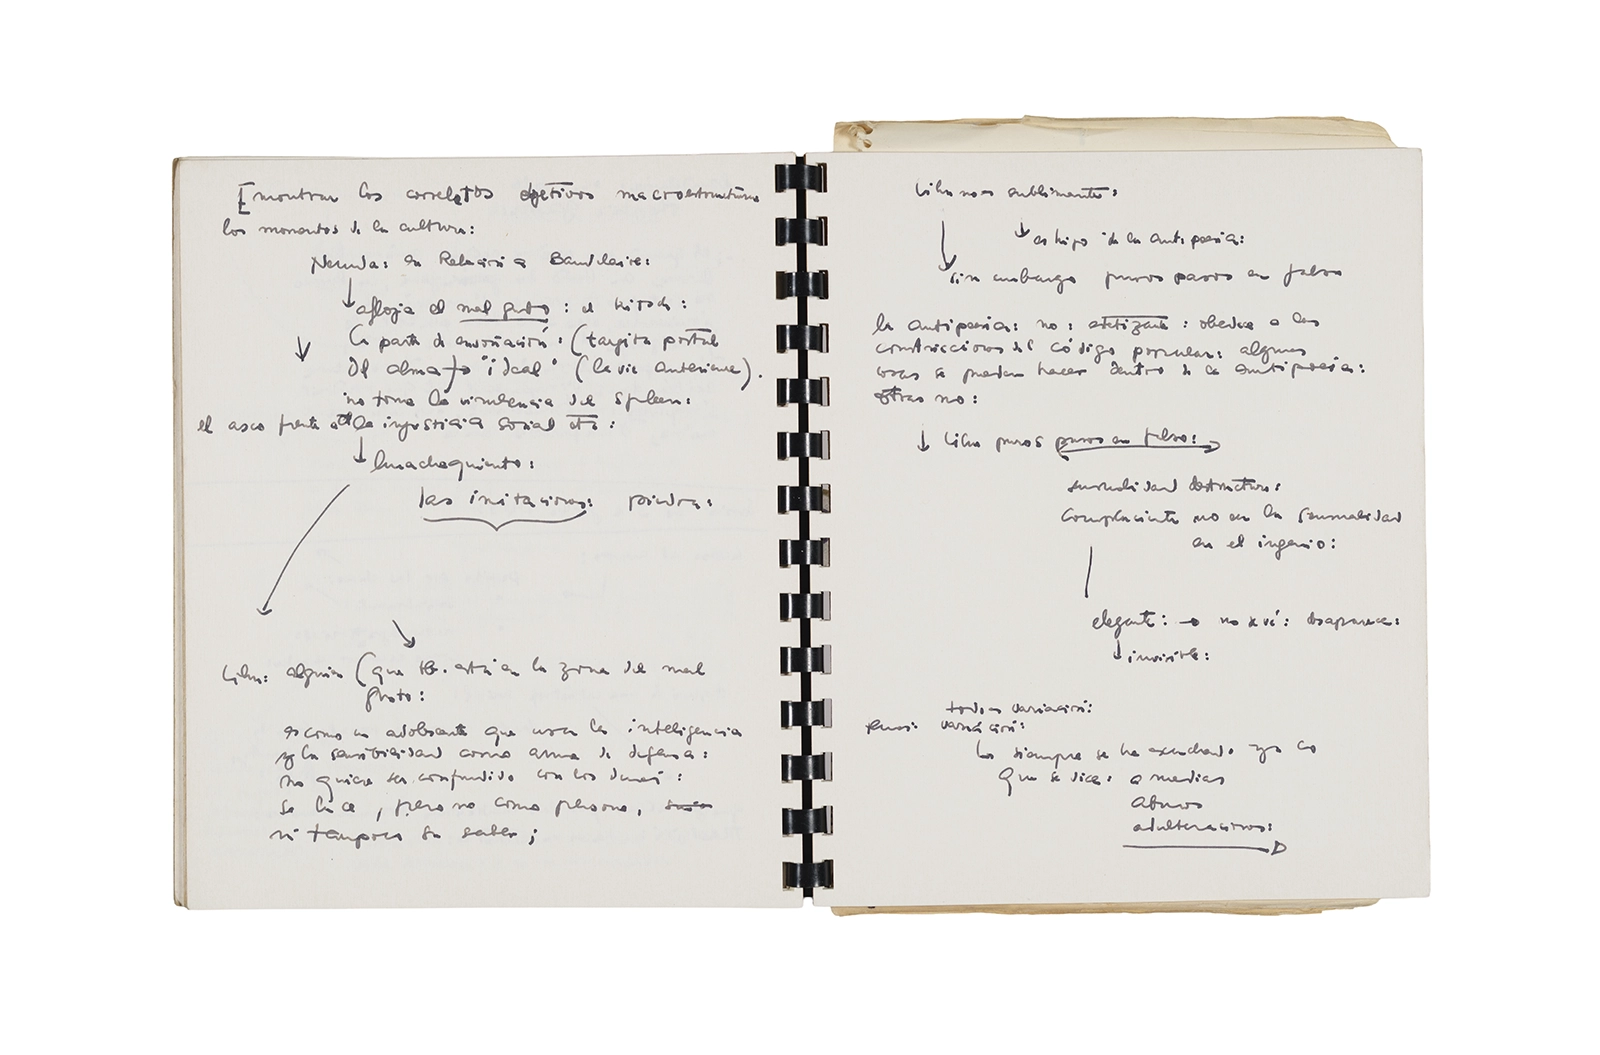 [mostrar los correlatos objetivos macroestructura
los momentos de la cultura:
Neruda: en Relación a Baudelaire:
afloja el mal gusto: el kitsch:
la parte de emoción: (tarjeta postal
del alma) o "ideal" (la vie anterieure).
no toma la virulencia del spleen:
el asco frente a la injusticia social etc:
huachaquiento:
las imitaciones: piedra:
Lihn: alguien (que tb. está en la zona del mal
gusto:
es como un adolescente que usa la inteligencia
y la sensibilidad como arma de defensa:
no quiere ser confundido con los demás:
se luce, pero no como persona,
ni tampoco su saber;
Lihn no es sublimante:
es hijo de la antipoesía:
sin embargo puros pasos en falso
la antipoesía: no: estetizante: obedece a las
construcciones del código popular: algunas
cosas se pueden hacer dentro de la antipoesía:
otras no:
Lihn puros pasos en falso:
sensualidad destructora:
complaciente no en la sensualidad
en el ingenio:
elegante: → no se vé: desaparece:
invisible:
todo es variación:
variación:
lo siempre se ha escuchado ya lo
que se dice: a medias
abusos
adulteraciones: